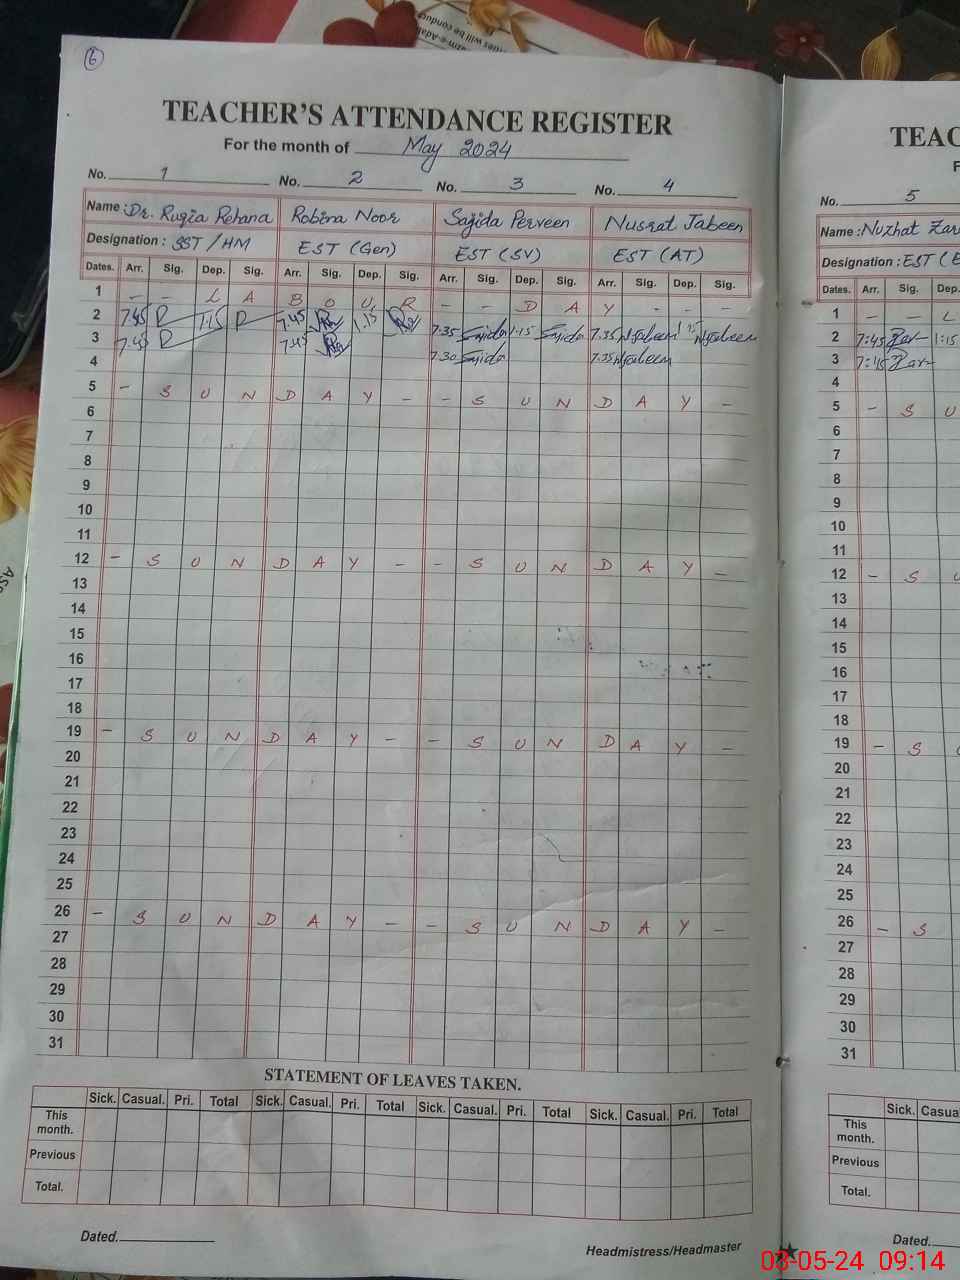 6
TEACHER'S ATTENDANCE REGISTER
For the month of May 2024
No. 1 No. 2 No. 3 No. 4
Name : Dr. Ruqia Rehana Robina Noor Sajida Perveen Nusrat Jabeen
Designation : SST / HM EST (Gen) EST (SV) EST (AT)
Dates. Arr. Sig. Dep. Sig. Arr. Sig. Dep. Sig. Arr. Sig. Dep. Sig. Arr. Sig. Dep. Sig.
1 - - L A B O U R - - D A Y - - -
2 7.45 1.15 7.45 1.15 7.35 Sajida 1.15 Sajida 7.35 NJabeen 1.15 NJabeen
3 7.45 7.45 7.30 Sajida 7.35 NJabeen
4
5 - S U N D A Y - - S U N D A Y -
6
7
8
9
10
11
12 - S U N D A Y - - S U N D A Y -
13
14
15
16
17
18
19 - S U N D A Y - - S U N D A Y -
20
21
22
23
24
25
26 - S U N D A Y - - S U N D A Y -
27
28
29
30
31
STATEMENT OF LEAVES TAKEN.
Sick. Casual. Pri. Total Sick. Casual. Pri. Total Sick. Casual. Pri. Total Sick. Casual. Pri. Total
This
month.
Previous
Total.
Dated.
Headmistress/Headmaster
TEAC
F
No. 5
Name : Nuzhat Zar
Designation : EST (E
Dates. Arr. Sig. Dep.
1 - - L
2 7:45 Zar 1:15
3 7:45 Zar
4
5 - S U
6
7
8
9
10
11
12 - S U
13
14
15
16
17
18
19 - S U
20
21
22
23
24
25
26 - S
27
28
29
30
31
Sick. Casua
This
month.
Previous
Total.
Dated.
03-05-24 09:14